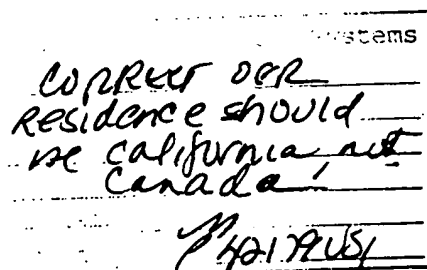 stems
CORRECT OUR
RESIDENCE SHOULD
BE California not
Canada!
P42179US1